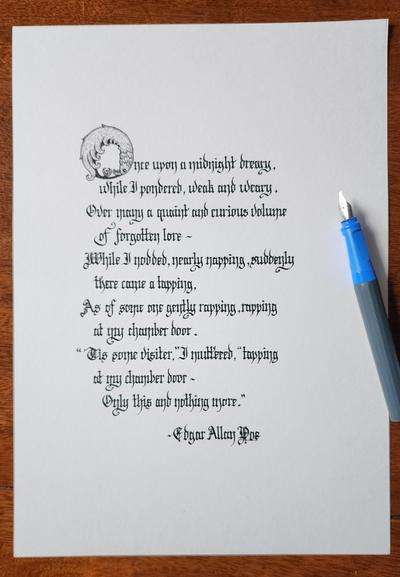 Once upon a midnight dreary,
while I pondered, weak and weary,
Over many a quaint and curious volume
of forgotten lore ~
While I nodded, nearly napping, suddenly
there came a tapping,
As of some one gently rapping, rapping
at my chamber door.
"'Tis some visiter," I muttered, "tapping
at my chamber door ~
Only this and nothing more."
~Edgar Allan Poe